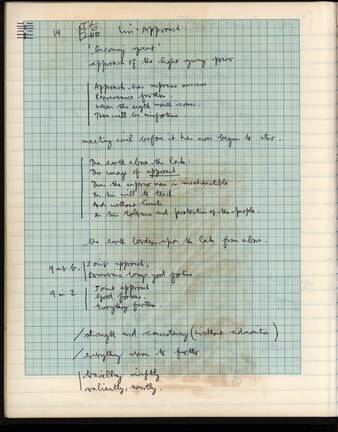 19 臨 Lin · Approach
'becoming great'
approach of the light giving power
Approach has supreme success
Perseverance furthers
When the eighth month comes
There will be misfortune
meeting evil before it has even begun to stir.
The earth above the lake
The image of approach
Thus the superior man is inexhaustible
In his will to teach
And without limits
In his tolerance and protection of the people.
the earth borders upon the lake from above.
9 at b. Joint approach.
Perseverance brings good fortune
9 in 2 Joint approach
Good fortune.
Everything furthers.
/ strength and consistency (without
/ everything serves to further
travelling swiftly
valiantly,